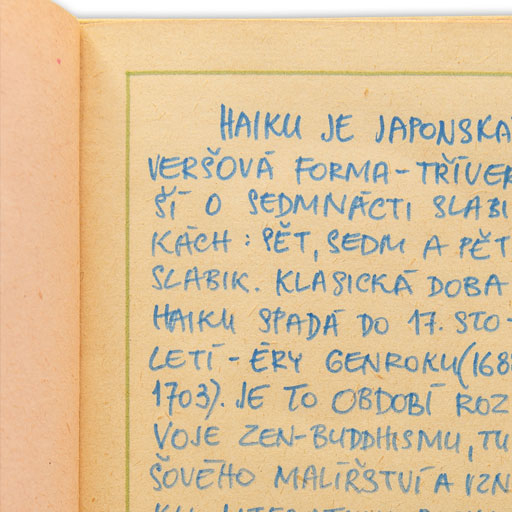 HAIKU JE JAPONSKÁ
VERŠOVÁ FORMA - TŘÍVER
ŠÍ O SEDMNÁCTI SLABI
KÁCH : PĚT, SEDM A PĚT
SLABIK. KLASICKÁ DOBA
HAIKU SPADÁ DO 17. STO-
LETÍ - ÉRY GENROKU (168
1703). JE TO OBDOBÍ ROZ
VOJE ZEN-BUDDHISMU, TU
ŠOVÉHO MALÍŘSTVÍ A VZN